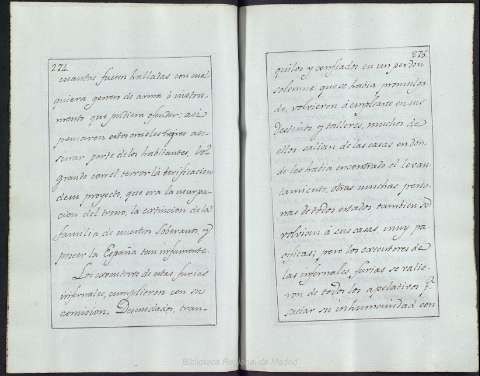 274
cuantos fueren halladas con cual
quiera genero de arma ó instru
mento que pudiera ofender: asi
pensaron estos crueles tigres ase=
gurar parte de los habitantes, lo
grando con el terror la verificacion
de su proyecto, que era la usurpa
cion del trono, la extincion de la
familia de nuestro soberano, y
poseer la España tan infamente.
Los executores de estas furias
infernales, cumplieron con su
comision. Desmedados, tran=
275
quilos y confiados, en un perdon
solemne que se habia promulga
do, volvieron á emplearse en sus
destinos y talleres, muchos de
ellos salian de las casas en don
de les habia encontrado el levan
tamiento, otras muchas perso
nas de todos estados tambien se
volvian á sus casas muy pa
cificas; pero los executores de
las infernales furias se valie
ron de todos los apelativos pª
saciar su inhumanidad con
Biblioteca Regional de Madrid